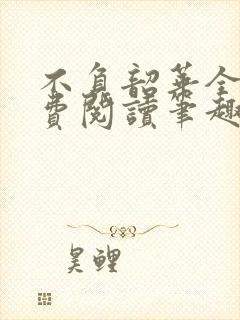 不負韶華全
費閱讀筆趣
昊鯉